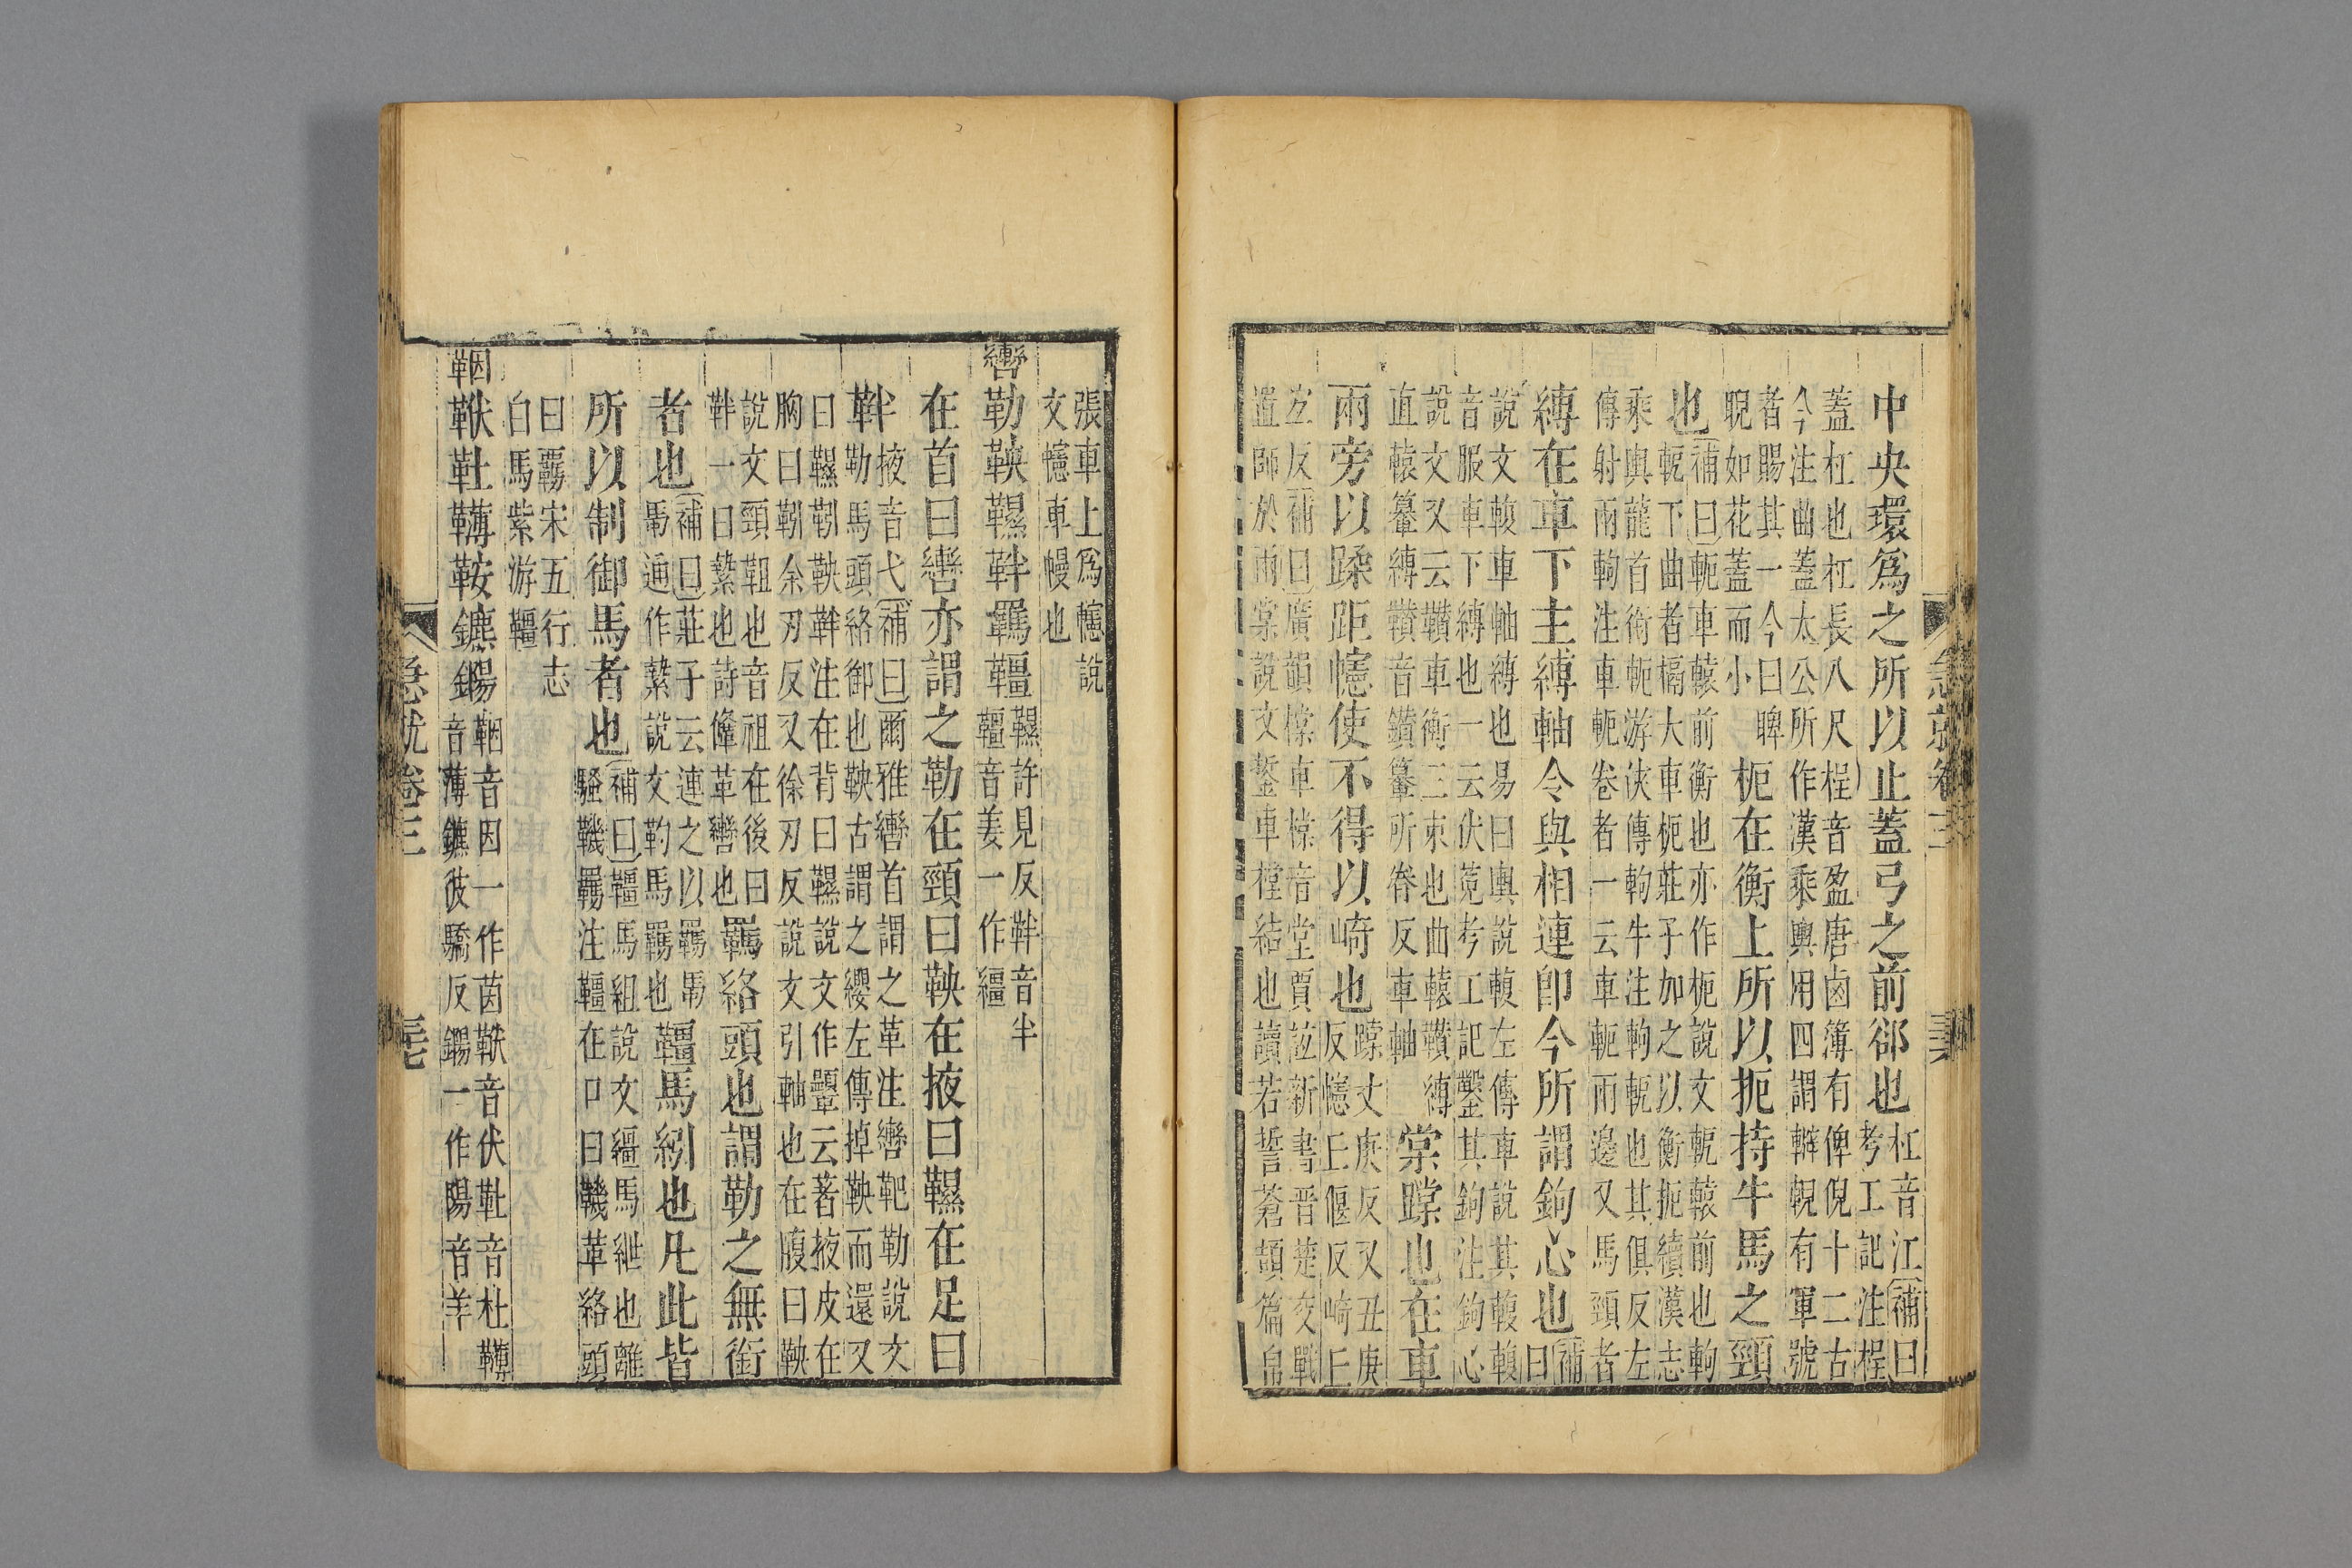 中央環爲之所以止蓋弓之前郤也
杠音江補曰
考工記注桯
蓋杠也杠長八尺桯音盈唐鹵簿有俾倪十二古
今注曲蓋太公所作漢乘輿用四謂轓輗有軍號
者賜其一今曰睥
睨如花蓋而小
枙在衡上所以扼持牛馬之頸
也
補曰軛車轅前衡也亦作枙說文軶轅前也軥
軶下曲者槅大車枙莊子加之以衡扼續漢志
乘輿龍首銜軛游俠傳軥牛注軥軶也其俱反左
傳射兩軥注車軛卷者一云車軛兩邊叉馬頸者
縛在車下主縛軸令與相連卽今所謂鉤心也
補
曰
說文䡅車軸縛也易曰輿說輹左傳車說其輹
音服車下縛也一云伏菟考工記鑿其鉤注鉤心
說文又云䡽車衡三束也曲轅䡽縛
直轅暈縛䡽音鑽暈所眷反車軸
棠𨎋也在車
兩旁以蹂距幰使不得以崎也
𨎋丈庚反又丑庚
反幰丘偃反崎丘
宏反補曰廣韻橖車橖音堂賈誼新書晉楚交戰
置師於兩棠說文鏨車樘結也讀若誓蒼頡篇帛
張車上爲幰說
文幰車幔也
轡勒鞅韅靽羈韁
韅許見反靽音半
韁音姜一作繮
在首曰轡亦謂之勒在頸曰鞅在掖曰韅在足曰
靽
掖音弋補曰爾雅轡首謂之革注轡靶勒說文
勒馬頭絡御也鞅古謂之纓左傳掉鞅而還又
曰韅靷鞅靽注在背曰韅說文作㬎云著掖皮在
胸曰靷余刃反又徐刃反說文引軸也在腹曰鞅
說文頸靻也音祖在後曰
靽一曰縶也詩鞗革轡也
羈絡頭也謂勒之無銜
者也
補曰莊子云連之以羈馽
馽通作縶說文馰馬羈也
韁馬紖也凡此皆
所以制御馬者也
補曰韁馬組說文繮馬紲也離
騷鞿羈注韁在口曰鞿革絡頭
曰覊宋五行志
白馬紫游韁
鞇鞴䩑鞾鞍鑣鍚
鞇音因一作茵鞴音伏䩑音杜鞾
音薄鑣彼驕反鍚一作陽音羊
急就卷三